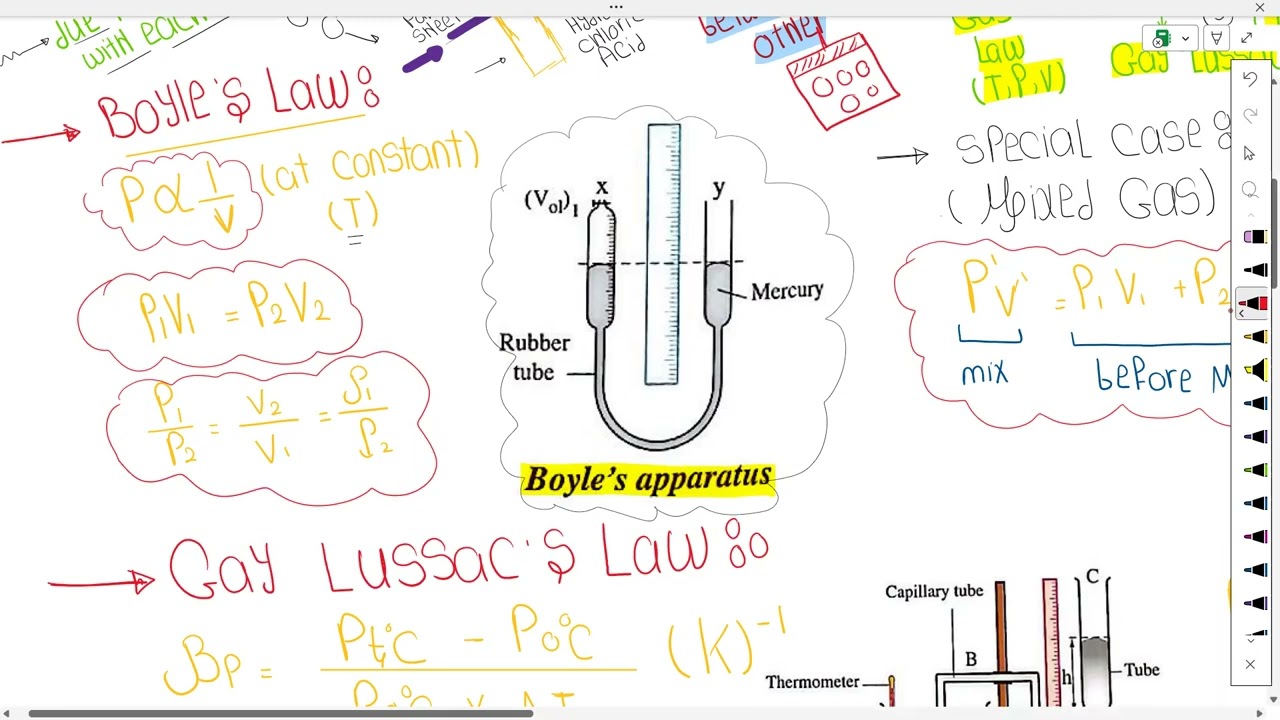 due
with each
sheet
Hydro
Chloric
Acid
other
Gas
Law
(T,P,V)
Gay Lussac
→ Boyle's Law:
P ∝ 1/V (at constant)
(T)
P₁V₁ = P₂V₂
P₁/P₂ = V₂/V₁ = ρ₁/ρ₂
x
y
(Vol)₁
Mercury
Rubber
tube
Boyle's apparatus
→ Special Case:
(Mixed Gas)
P'V' = P₁V₁ + P₂
mix
before M
→ Gay Lussac's Law:
βp = Pt°C - P0°C (K)⁻¹
Capillary tube
C
B
h
Tube
Thermometer